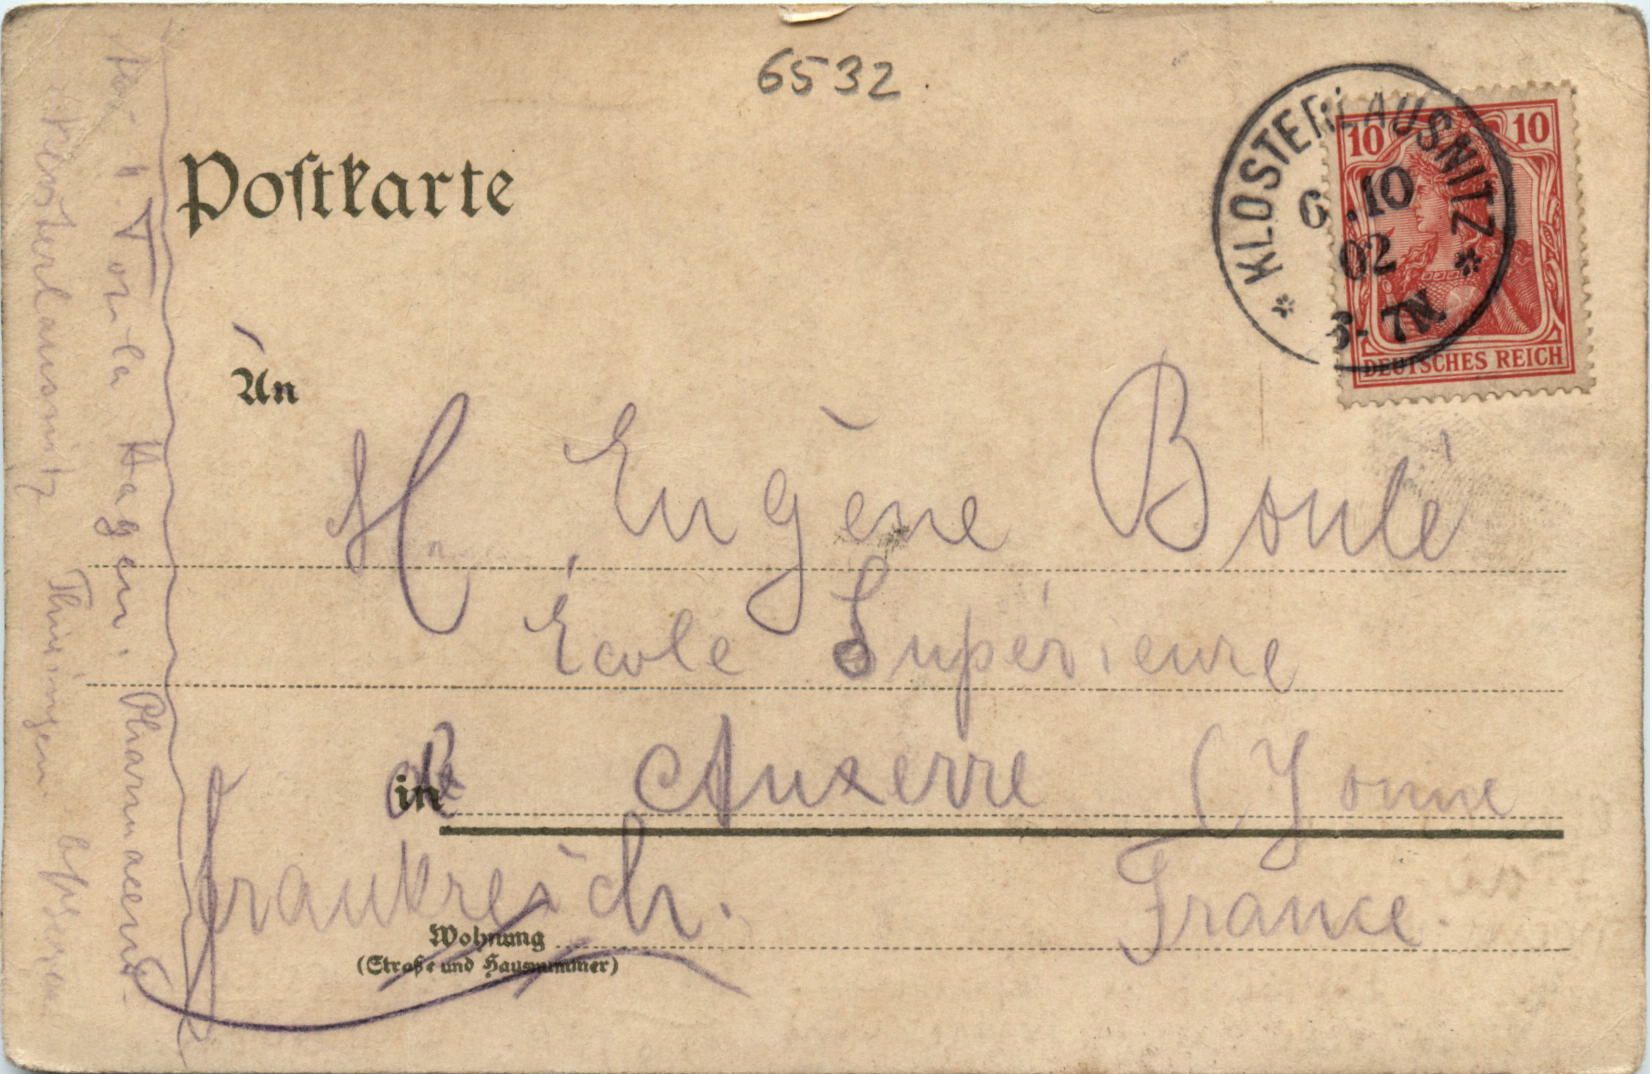 6532
Postkarte
KLOSTERLAUSNITZ
6.10
02
6-7N.
10 10
DEUTSCHES REICH
An
H Eugène Boulé
École Supérieure
in de Auxerre (Yonne
Frankreich. France.
Wohnung
(Straße und Hausnummer)
Hagen, Pharmaceut.
Klosterlausnitz Thüringen